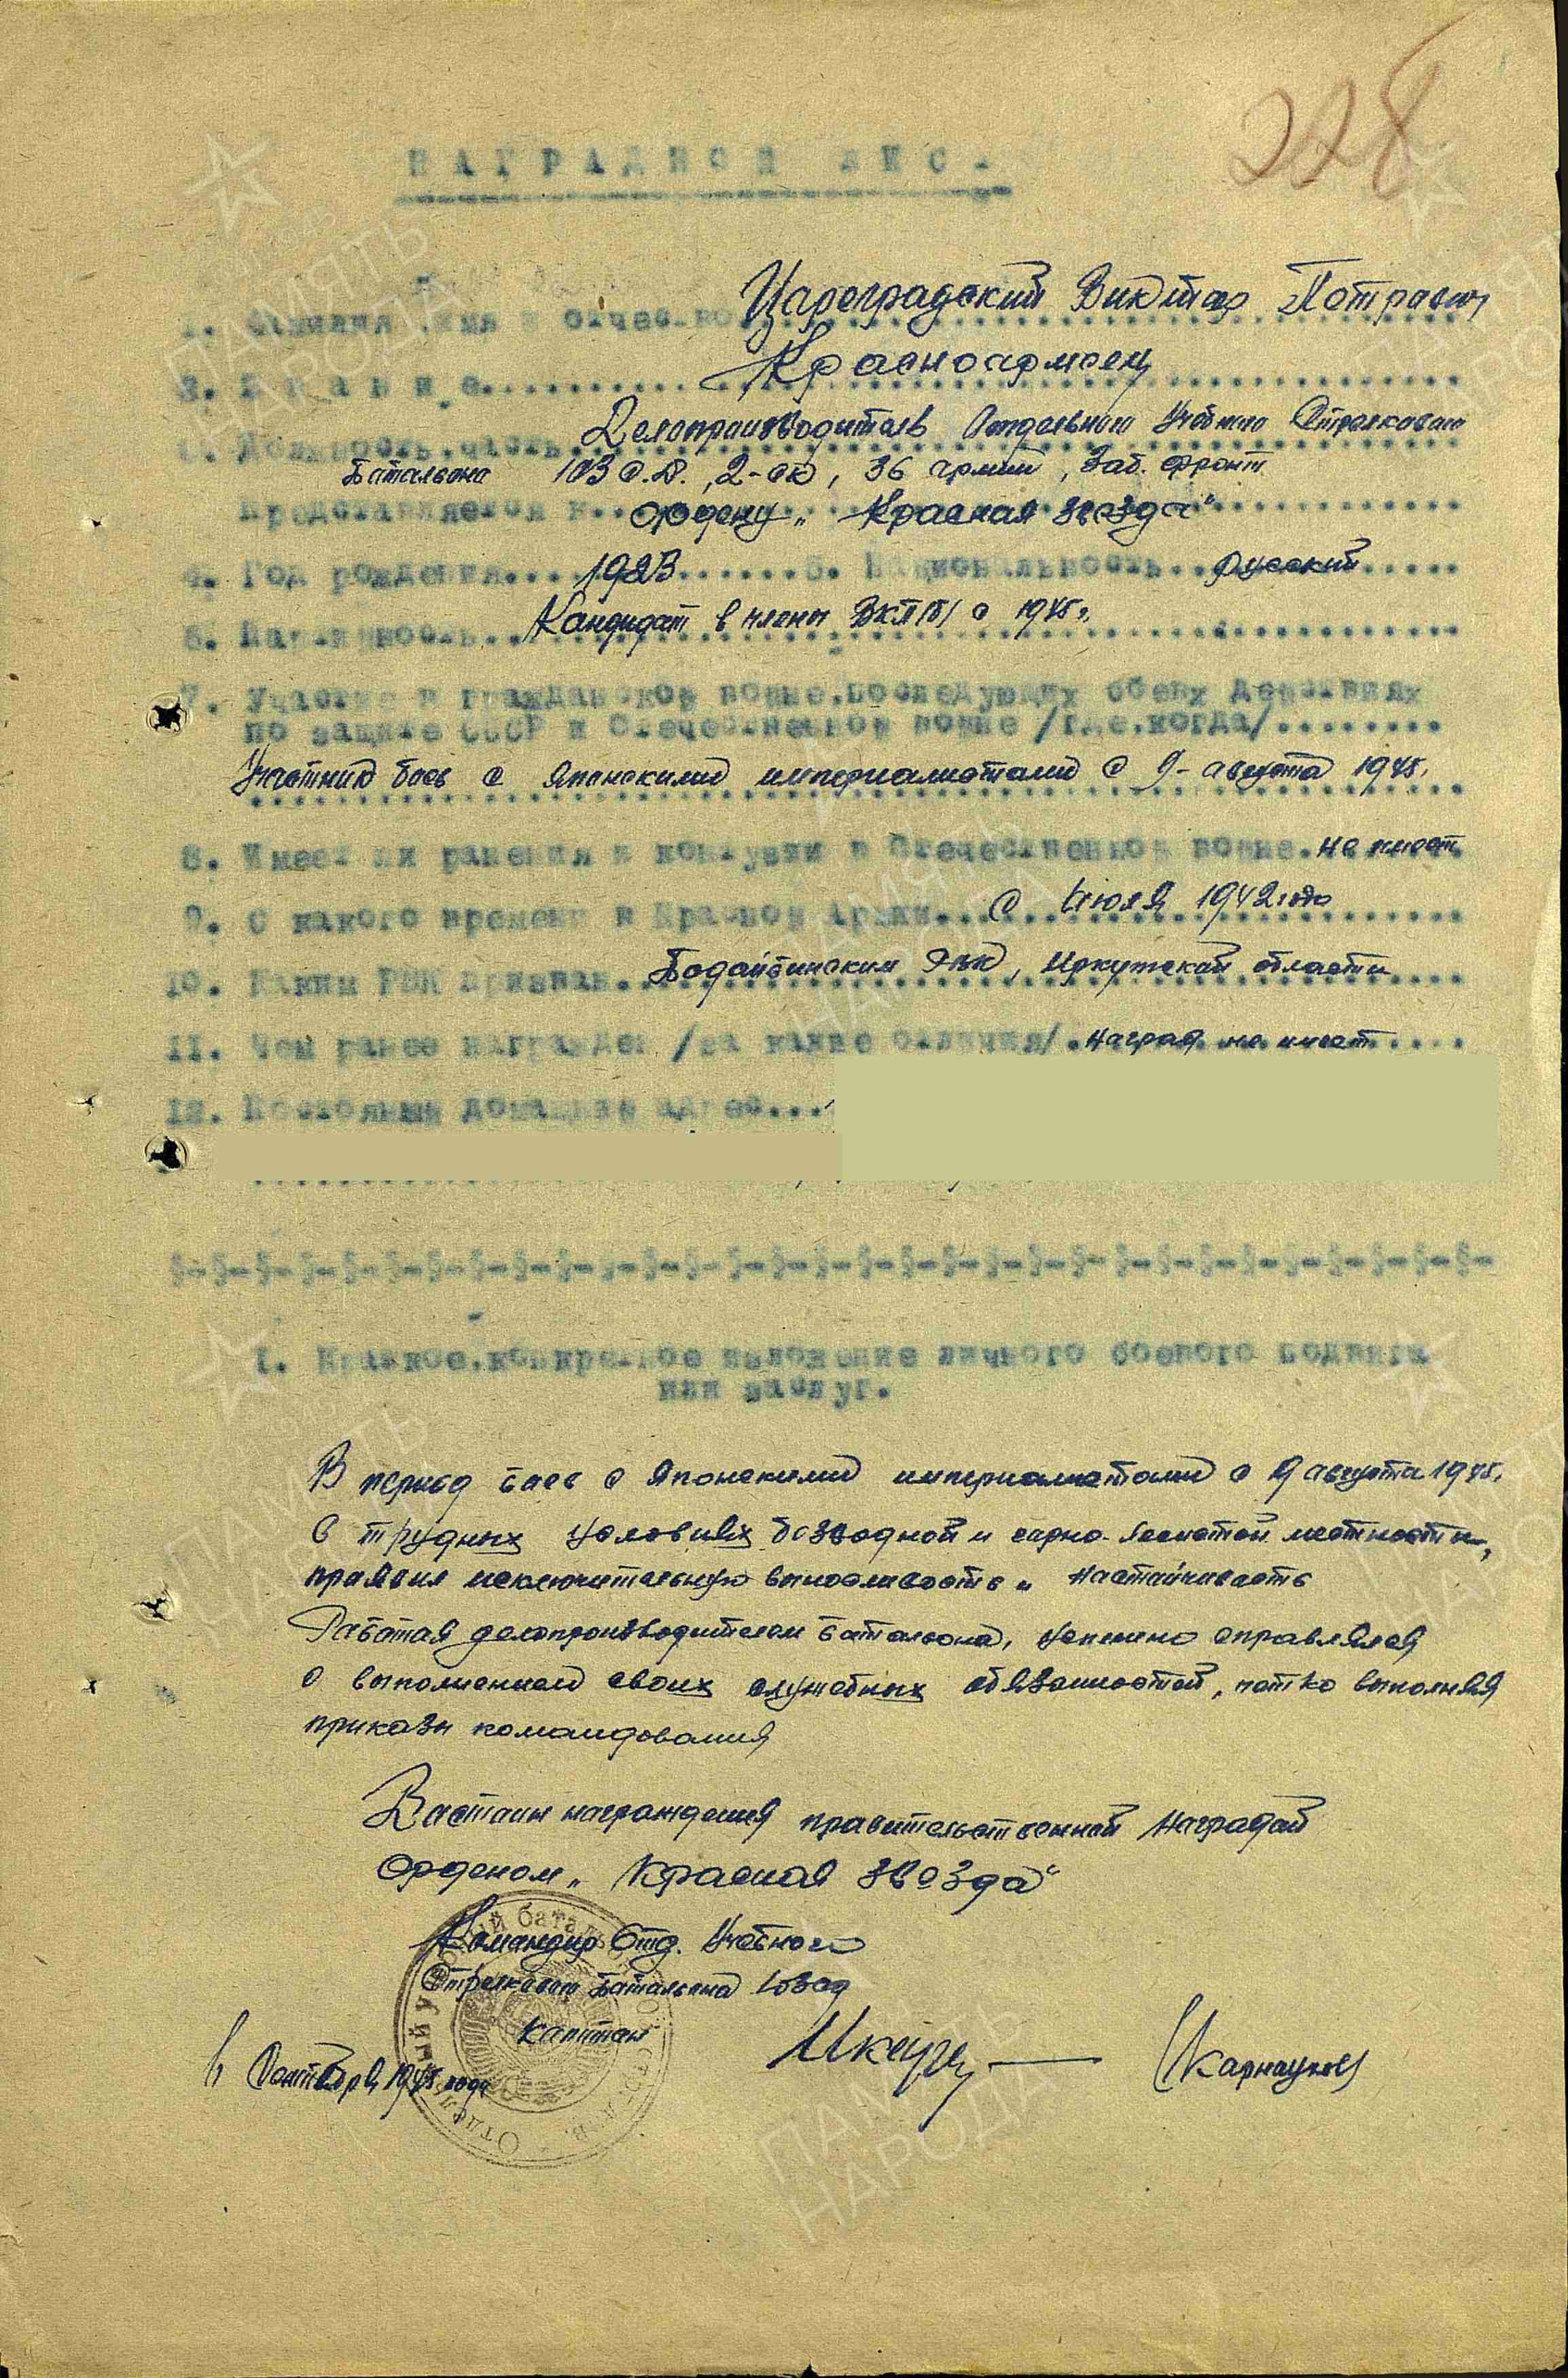 228
НАГРАДНОЙ ЛИС
1. Фамилия имя и отчество... Цареградский Виктор Петрович
2. Звание... Красноармеец
3. Должность, часть Делопроизводитель Отдельного Учебного Стрелкового
Батальона 103 с.д., 2-ск, 36 армии, Заб. фронт
Представляется к... ордену „Красная звезда"
4. Год рождения... 1923 ...5. Национальность... русский
6. Партийность... Кандидат в члены ВКП/б/ с 1945 г.
7. Участие в гражданской войне, последующих боевых действиях
по защите СССР и Отечественной войне /где, когда/...
Участник боев с Японскими империалистами с 9-августа 1945.
8. Имеет ли ранения и контузии в Отечественной войне. не имеет
9. С какого времени в Красной Армии... с Июля 1942 года
10. Каким РВК призван... Бодайбинским РВК, Иркутской области
11. Чем ранее награжден /за какие отличия/. Наград не имеет
12. Постоянный домашний адрес...
1. Краткое, конкретное изложение личного боевого подвига
или заслуг.
В период боев с Японскими империалистами с 9 августа 1945.
в трудных условиях безводной и горно-лесистой местности,
проявил исключительную выносливость и настойчивость
Работая делопроизводителем батальона, успешно справлялся
с выполнением своих служебных обязанностей, четко выполняя
приказы командования
Достоин награждения правительственной наградой
Орденом „Красная звезда"
Командир Отд. Учебного
Стрелкового Батальона 103 сд
капитан
/Карнаухов/
6 Сентября 1945 года
ПАМЯТЬ
НАРОДА